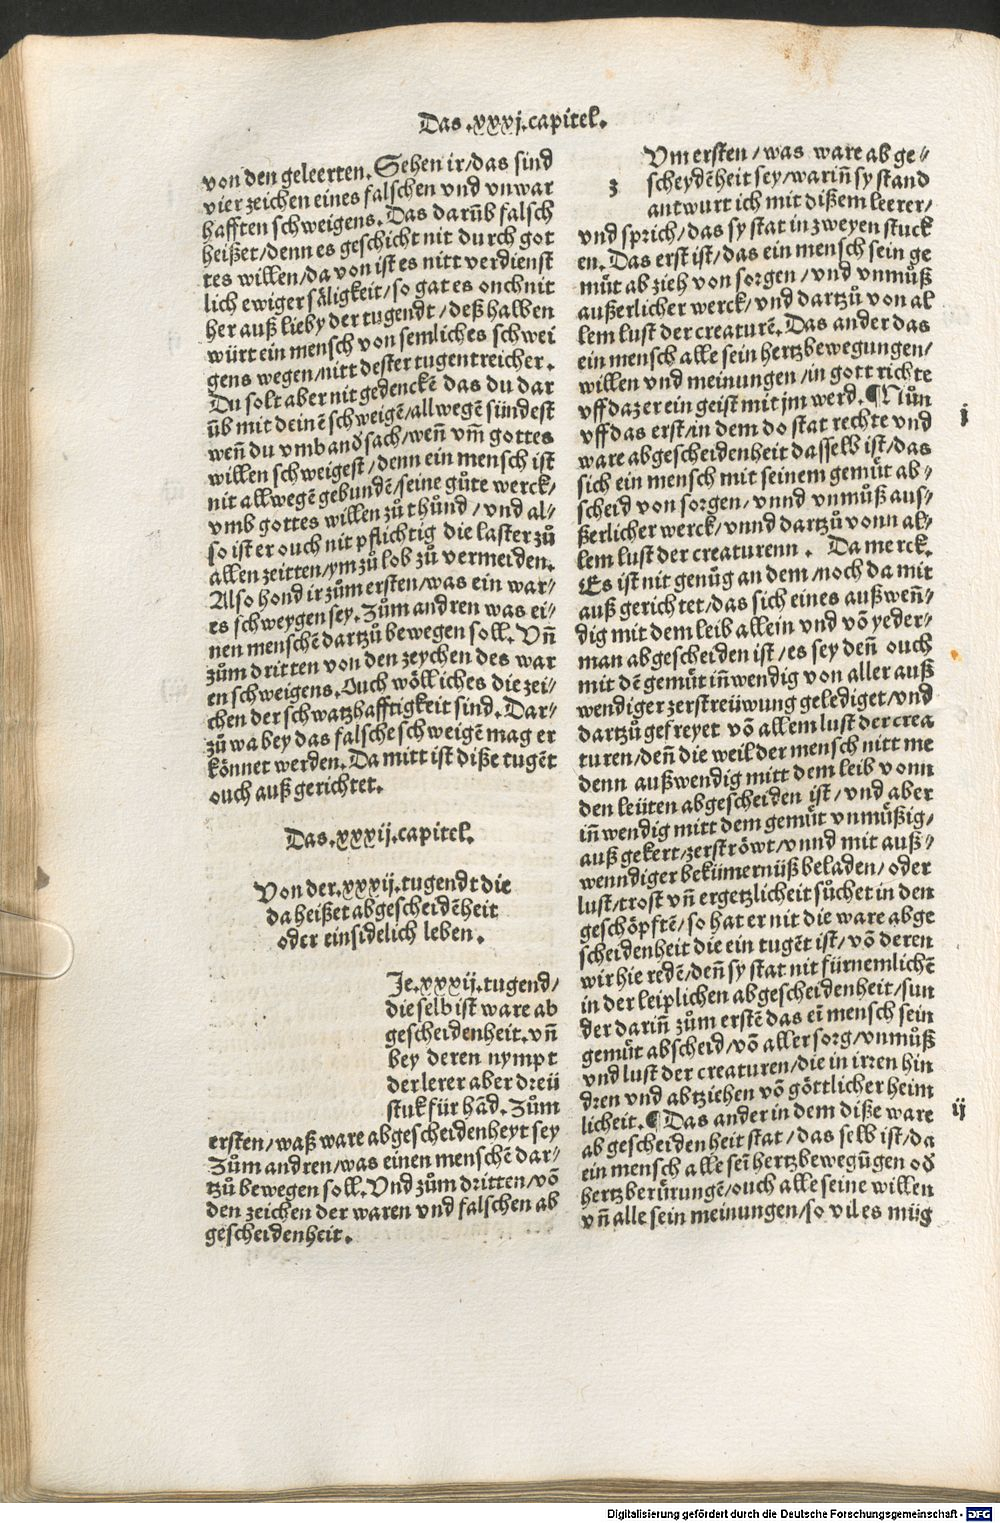 Das .xxxj. capitel.
von den geleerten. Sehen ir/das sind
vier zeichen eines falschen vnd vnwar
hafften schweigens. Das darūb falsch
heißet/denn es geschicht nit durch got
tes willen/da von ist es nitt verdienst
lich ewiger säligkeit/so gat es onch nit
her auß lieby der tugendt/deß halben
würt ein mensch von semliches schwei
gens wegen/nitt dester tugentreicher.
Du solt aber nit gedenckē das du dar
ūb mit deinē schweigē/allwegē sündest
weñ du vmb and̕ sach/weñ vm̄ gottes
willen schweigest/denn ein mensch ist
nit allwegē gebundē/seine gůte werck/
vmb gottes willen zů thůnd/vnd al⸗
so ist er ouch nit pflichtig die laster zů
allen zeitten/ym zů lob zů vermeiden.
Also hond ir zům ersten/was ein war⸗
es schweygen sey. Zům andren was ei⸗
nen menschē dartzů bewegen soll. Vñ
zům dritten von den zeychen des war
en schweigens. Ouch wölliches die zei⸗
chen der schwatzhafftigkeit sind. Dar⸗
zů wa bey das falsche schweigē mag er
könnet werden. Da mitt ist diße tugēt
ouch auß gerichtet.
Das .xxxij. capitel.
Von der .xxxij. tugendt die
da heißet abgescheidēheit
oder einsidelich leben.
Je .xxxij. tugend/
die selb ist ware ab
gescheidenheit. vñ
bey deren nympt
der lerer aber dreü
stuk für hād. Zům
ersten/waß ware abgescheidenheyt sey
Zům andren/was einen menschē dar⸗
tzů bewegen soll. Vnd zům dritten/vō
den zeichen der waren vnd falschen ab
gescheidenheit.
Vm ersten/was ware ab ge⸗
3 scheydēheit sey/wariñ sy stand
antwurt ich mit dißem leerer/
vnd sprich/das sy stat in zweyen stuck
en. Das erst ist/das ein mensch sein ge
müt ab zieh von sorgen/vnd vnmůß
außerlicher werck/vnd dartzů von al
lem lust der creaturē. Das ander das
ein mensch alle sein hertzbewegungen/
willen vnd meinungen/in gott richte
vff daz er ein geist mit jm werd. ¶Nůn j
vff das erst/in dem do stat rechte vnd
ware abgescheidenheit dasselb ist/das
sich ein mensch mit seinem gemüt ab⸗
scheid von sorgen/vnnd vnmůß aus⸗
ßerlicher werck/vnnd dartzů vonn al⸗
lem lust der creaturenn. Da merck.
Es ist nit genůg an dem/noch da mit
auß gerichtet/das sich eines außweñ⸗
dig mit dem leib allein vnd vō yeder⸗
man abgescheiden ist/es sey deñ ouch
mit dē gemüt iñwendig von aller auß
wendiger zerstreüwung gelediget/vnd
dartzů gefreyet vō allem lust der crea
turen/deñ die weil der mensch nitt me
denn außwendig mitt dem leib vonn
den leüten abgescheiden ist/vnd aber
iñwendig mitt dem gemüt vnmüßig/
auß gekert/zerströwt/vnnd mit auß⸗
wenndiger bekümernüß beladen/oder
lust/trost vñ ergetzlicheit sůchet in den
geschöpftē/so hat er nit die ware abge
scheidenheit die ein tugēt ist/vō deren
wir hie redē/deñ sy stat nit fürnemlichē
in der leiplichen abgescheidenheit/sun
der dariñ zům erstē das eī mensch sein
gemüt abscheid/vō aller sorg/vnmůß
vnd lust der creaturen/die in irren hin
dren vnd abtziehen vō göttlicher heim
licheit. ¶Das ander in dem diße ware ij
ab gescheidenheit stat/das selb ist/da
ein mensch alle seī hertzbewegūgen od̕
hertzberürungē/ouch alle seine willen
vñ alle sein meinungen/so vil es müg
Digitalisierung gefördert durch die Deutsche Forschungsgemeinschaft - DFG